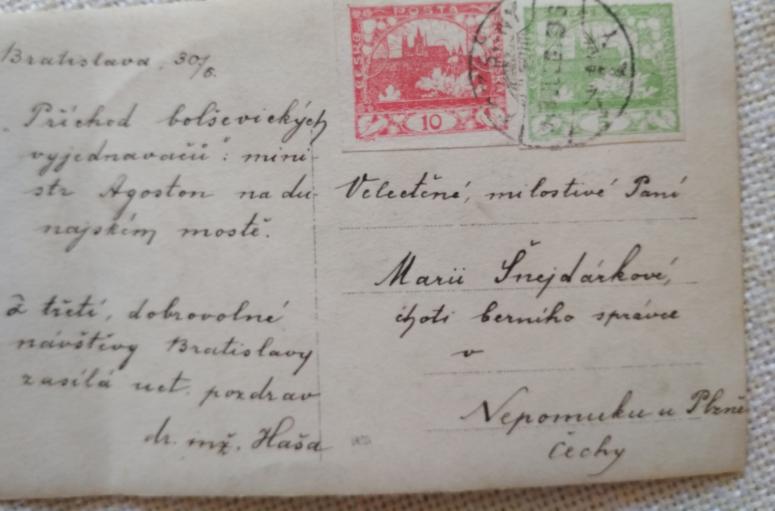 Bratislava, 30/6.
„Příchod bolševických
vyjednavačů": mini-
str Agoston na du-
najském mostě.
Z třetí, dobrovolné
návštěvy Bratislavy
zasílá uct. pozdrav
dr. inž. Haša
POSTA
ČESKO
10
Velectěné, milostivé Paní
Marii Šnejdárkové,
choti berního správce
v
Nepomuku u Plzně
Čechy